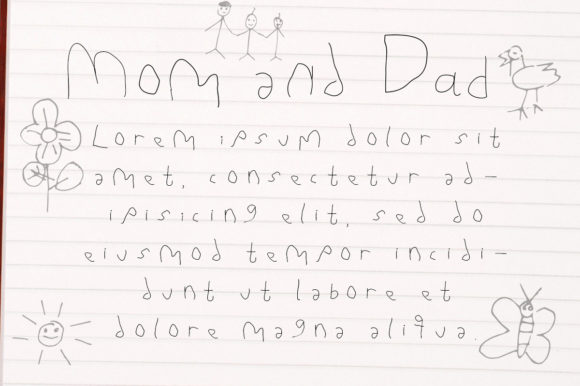 Mom and Dad
Lorem ipsum dolor sit
amet, consectetur ad-
ipisicing elit, sed do
eiusmod tempor incidi-
dunt ut labore et
dolore magna aliqua.